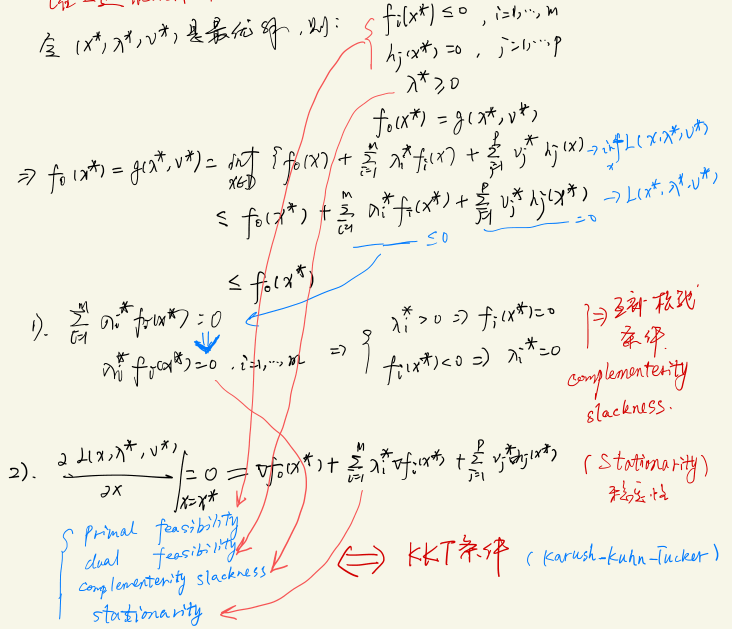 令 (x*, λ*, ν*) 是最优解, 则: { fi(x*) ≤ 0 , i=1,…,m
hj(x*) = 0 , j=1,…,p
λ* ≥ 0
f₀(x*) = g(λ*, ν*)
⇒ f₀(x*) = g(λ*, ν*) = inf x∈D { f₀(x) + Σ i=1 m λi* fi(x) + Σ j=1 p νj* hj(x) → inf x L(x, λ*, ν*)
≤ f₀(x*) + Σ i=1 m λi* fi(x*) + Σ j=1 p νj* hj(x*) → L(x*, λ*, ν*)
≤ 0 = 0
≤ f₀(x*)
1). Σ i=1 m λi* fi(x*) = 0
λi* fi(x*) = 0 , i=1,…,m ⇒ { λi* > 0 ⇒ fi(x*) = 0
fi(x*) < 0 ⇒ λi* = 0
} ⇒ 互补松弛
条件
complementerity
slackness.
2). ∂ L(x, λ*, ν*) / ∂x | x=x* = 0 = ∇f₀(x*) + Σ i=1 m λi* ∇fi(x*) + Σ j=1 p νj* ∇hj(x*) (Stationarity)
稳定性
{ primal feasibility
dual feasibility
complementerity slackness
stationarity
⇔ KKT条件 (Karush-Kuhn-Tucker)